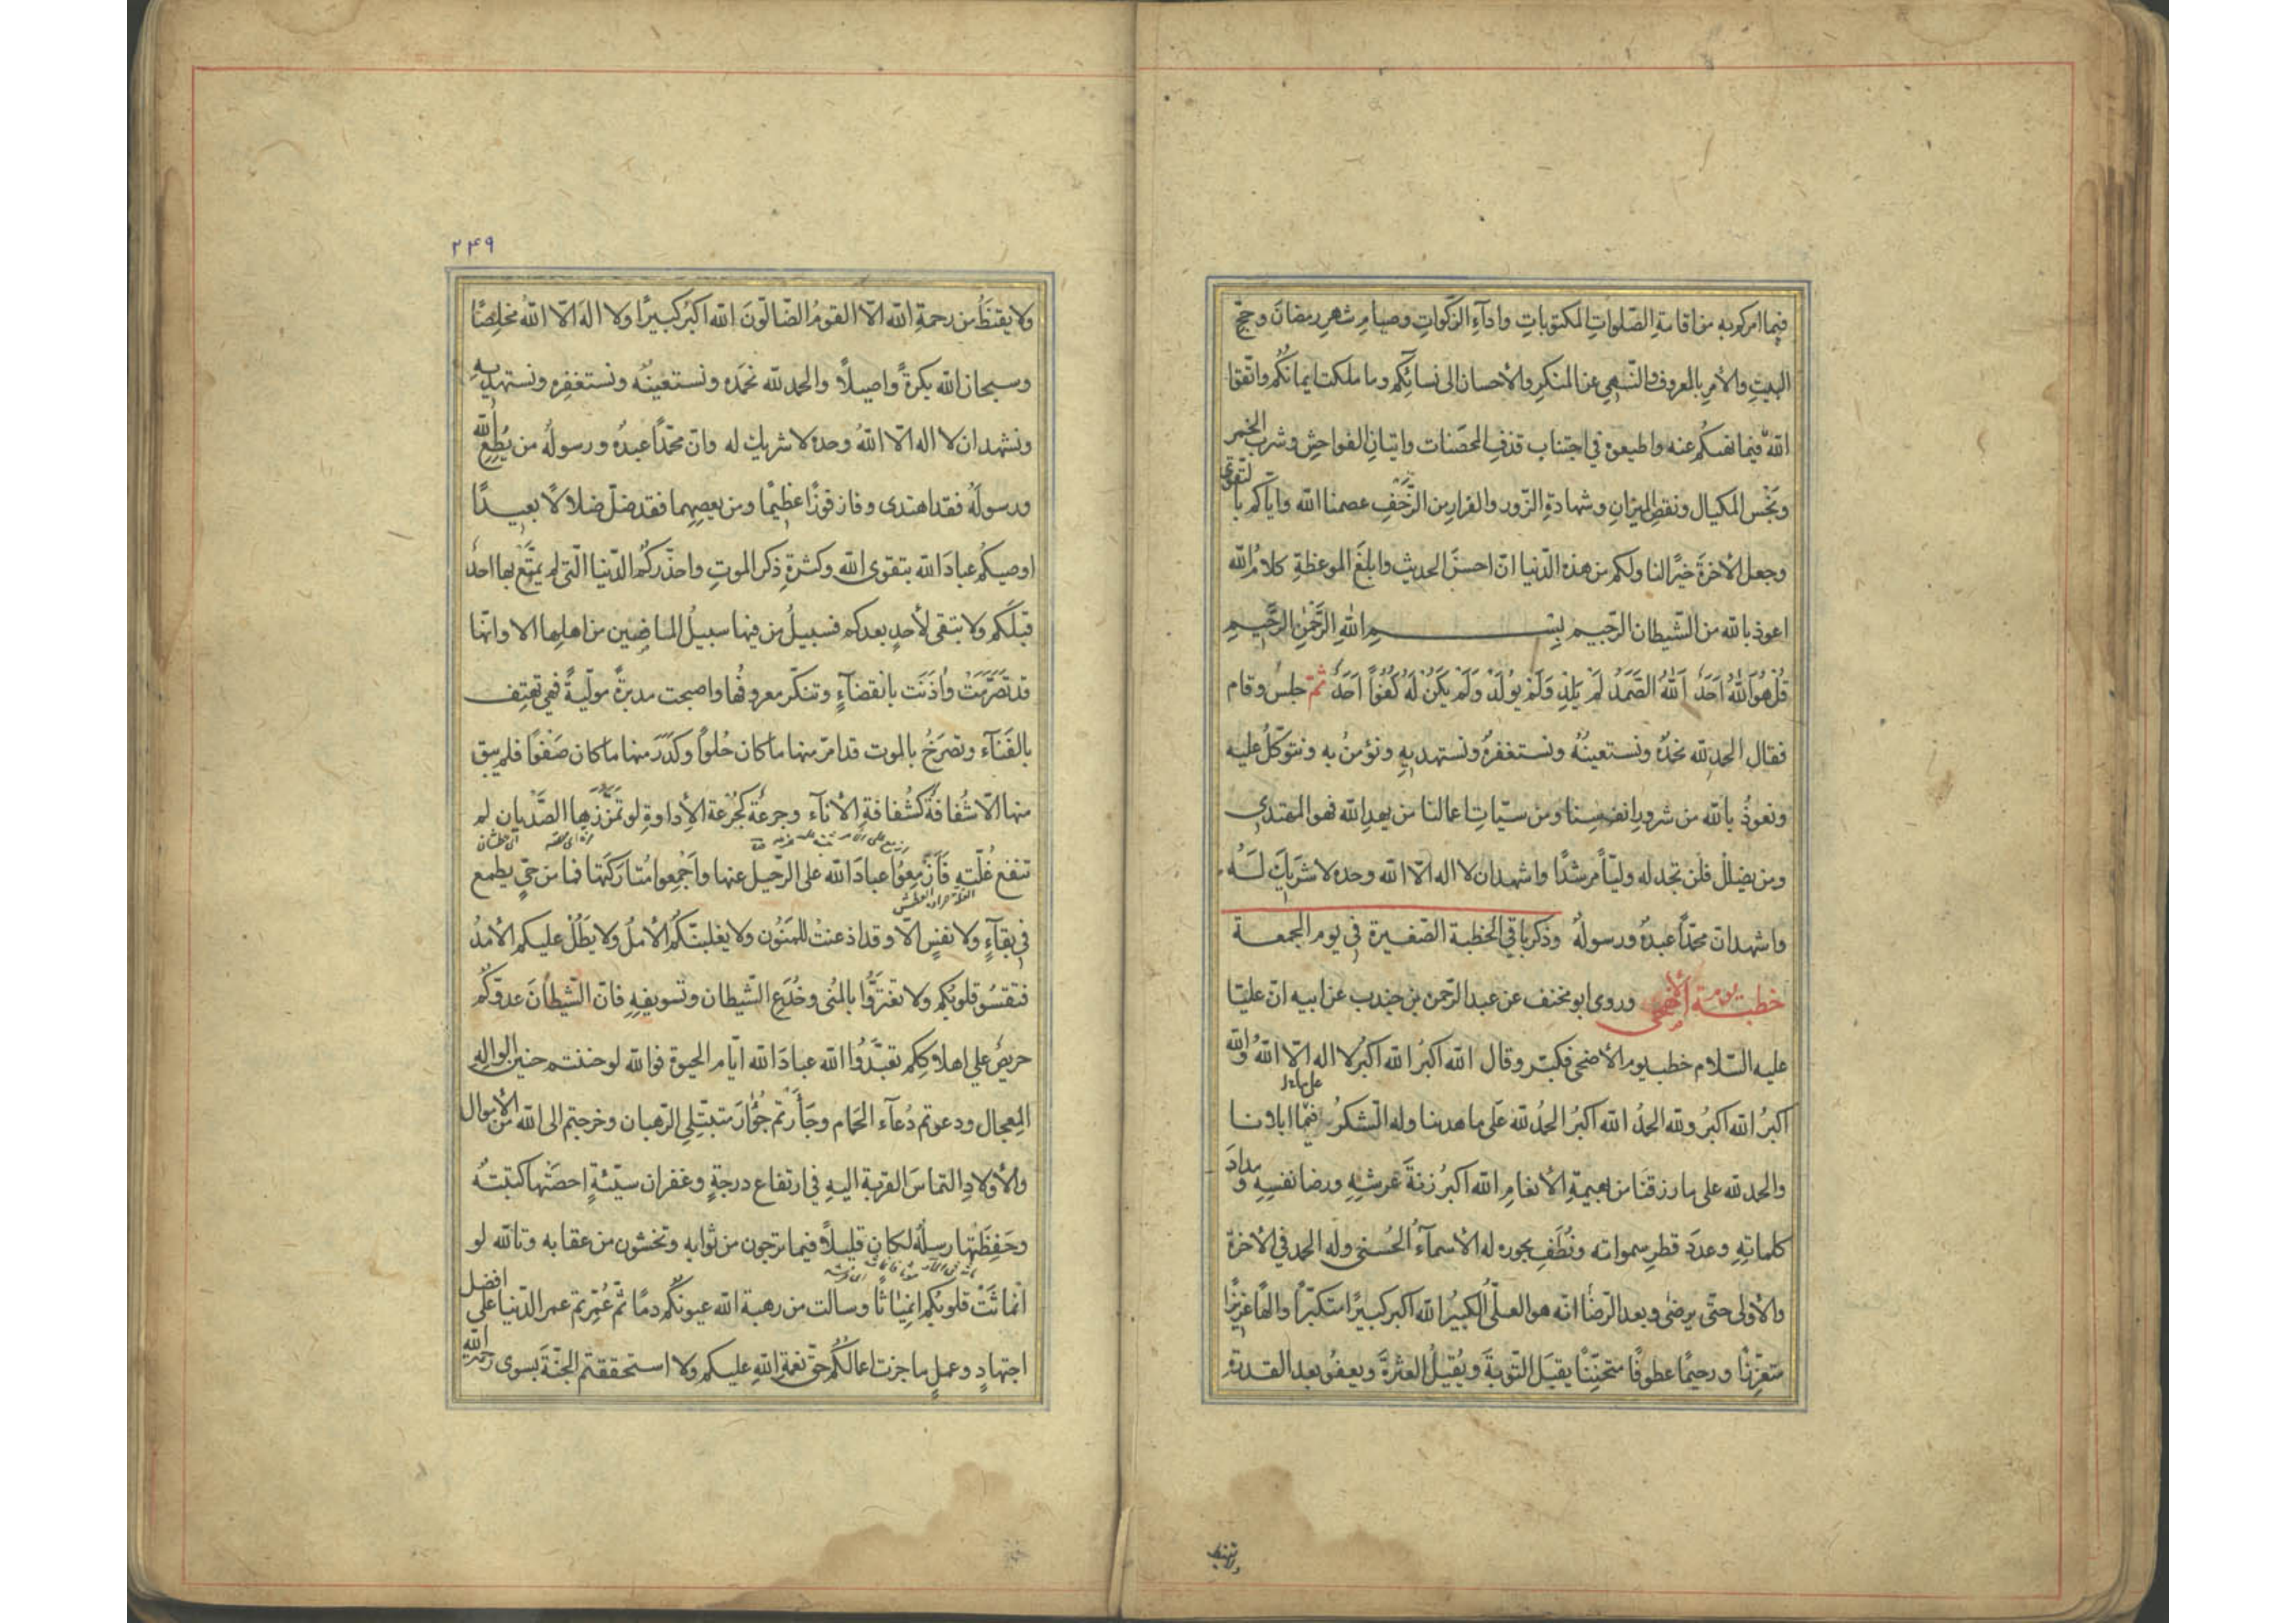 فيما امركم به من اقامةِ الصّلواتِ المكتوباتِ واداۤءِ الزّكواتِ وصيامِ شهرِ رمضانَ وحجّ
البيتِ والأمرِ بالمعروفِ والنّهىِ عن المنكرِ والأحسان الى نسائِكم وما ملكت ايمانُكُم واتّقوا
اللّهَ فيما نهيكُم عنه واطيعوه في اجتناب قذفِ المحصَنات واتيانِ الفواحشِ وشربِ الخمرِ
وبَخْسِ المكيال ونقصِ الميزانِ وشهادةِ الزّور والفرارِ من الزّحْفِ عصمنا اللّه وايّاكم بالتّقوى
وجعل الأخرةَ خيرًا لنا ولكم من هذه الدّنيا انّ احسنَ الحديث وابلغَ الموعظةِ كلامُ اللّه
اعوذ باللّه من الشّيطان الرّجيم بِسْمِ اللّهِ الرَّحْمٰنِ الرَّحِيمِ
قُلْ هُوَ اللّهُ اَحَدٌ اَللّهُ الصَّمَدُ لَمْ يَلِدْ وَلَمْ يُولَدْ وَلَمْ يَكُنْ لَهُ كُفُوًا اَحَدٌ ثمّ جلس وقام
فقال الحمد للّه نحمدُه ونستعينُه ونستغفرُه ونستهديهِ ونؤمنُ به ونتوكّلُ عليه
ونعوذُ باللّه من شرورِ انفسِنا ومن سيّاتِ اعمالنا من يهدِ اللّه فهو المهتدى
ومن يضلل فلن تجد له وليّاً مرشدًا واشهد ان لا اله الّا اللّه وحده لا شَرِيكَ لَهُ
واشهد انّ محمّداً عبدُه ورسولُه وذكر باقي الخطبة الصّغيرة في يوم الجمعة
خطبتـه يوم الأضحى وروى ابو مخنف عن عبد الرّحمن بن جندب عن ابيه انّ عليّا
عليه السّلام خطب يوم الأضحى فكبّر وقال اللّه اكبرُ اللّه اكبرُ لا اله الّا اللّهُ واللّه
اكبرُ اللّه اكبرُ وللّه الحمدُ اللّه اكبرُ الحمدُ للّه على ما هدينا وله الشّكرُ فيما ابلانا
والحمد للّه على ما رزقَنا من بهيمةِ الأنعامِ اللّه اكبرُ زنةَ عرشِهِ ورضا نفسِهِ ومدادَ
كلماتِهِ وعددَ قطرِ سمواته ونُطَفِ بحوره له الأسماۤءُ الحُسنى وله الحمد في الأخرة
والأولى حتّى يرضى وبعد الرّضا انّه هو العلىُّ الكبيرُ اللّه اكبر كبيرًا متكبّراً والهًا عزيزًا
متعزّزًا ورحيمًا عطوفًا متحنّنًا يقبَل التّوبةَ ويُقيلُ العثرةَ ويعفو بعد القدرة
ولا يقنط
۲۴۹
ولا يقنَطُ من رحمةِ اللّه الّا القومُ الضّالّونَ اللّه اكبرُ كبيرًا ولا اله الّا اللّهُ مخلِصًا
وسبحان اللّه بكرةً واصيلاً والحمد للّه نحمَده ونستعينُه ونستغفره ونستهديهِ
ونشهد ان لا اله الّا اللّهُ وحده لا شريك له وانّ محمّداً عبدُه ورسولُه من يُطِعِ اللّهَ
ورسولَهُ فقد اهتدى وفاز فوزًا عظيمًا ومن يعصِهِما فقد ضلّ ضلالًا بعيدًا
اوصيكُم عبادَ اللّه بتقوى اللّه وكثرةِ ذكر الموتِ واحذّركُم الدّنيا الّتى لم يتمتّع بها احدٌ
قبلَكُم ولا تبقى لأحدٍ بعدكم فسبيلُ من فيها سبيلُ الماضِين من اهلِها الا وانّها
قد تصَرَّمَتْ واٰذَنَت بانقضاۤءٍ وتنكّر معروفُها واصبحت مدبرةً مولّيةً فهى تهتِف
بالفَناۤء وتصرَخُ بالموت قد امرّ منها ما كان حُلواً وكَدَرَ منها ما كان صَفوًا فلم يبق
منها الّا شُفافةٌ كشُفافةِ الأناۤء وجرعةٌ كجُرعة الأداوةِ لو تمزّزها الصَّديان لم
تنقع غُلّته فَاَزْمِعُوا عبادَ اللّه على الرّحيل عنها وأجْمِعوا مُتارَكَتَها فما من حىٍّ يطمع
في بقاۤءٍ ولا نفسٍ الّا وقد اذعنتْ للمَنُون ولا يغلبنّكُمُ الأملُ ولا يَطُلْ عليكم الأمدُ
فتقسُو قلوبُكم ولا تغترُّوا بالمُنى وخُدَعِ الشّيطان وتسويفِهِ فانّ الشّيطانَ عدوّكُم
حريصٌ على اهلاكِكم تعبَّدُوا اللّه عبادَ اللّه ايّام الحيوة فواللّه لو حننتم حنين الوالِهِ
المِعجال ودعوتم دُعاۤء الحَمام وجَأَرتم جُؤارَ متبتّلى الرّهبان وخرجتم الى اللّه من الأموال
والأولادِ التماسَ القربة اليهِ في ارتفاع درجةٍ وغفران سيّئةٍ احصَتْها كتبتُه
وحَفِظَتْها رسلُه لكان قليلاً فيما ترجون من ثوابه وتخشون من عقابه وتاللّه لو
انماثَتْ قلوبُكم انمِياثًا وسالت من رهبة اللّه عيونُكُم دمًا ثمّ عُمّرتم عمر الدّنيا على افضل
اجتهادٍ وعملٍ ما جزت اعمالُكُم حقّ نعمةِ اللّهِ عليكم ولا استحققتم الجنّةَ بسوى رحمة اللّه